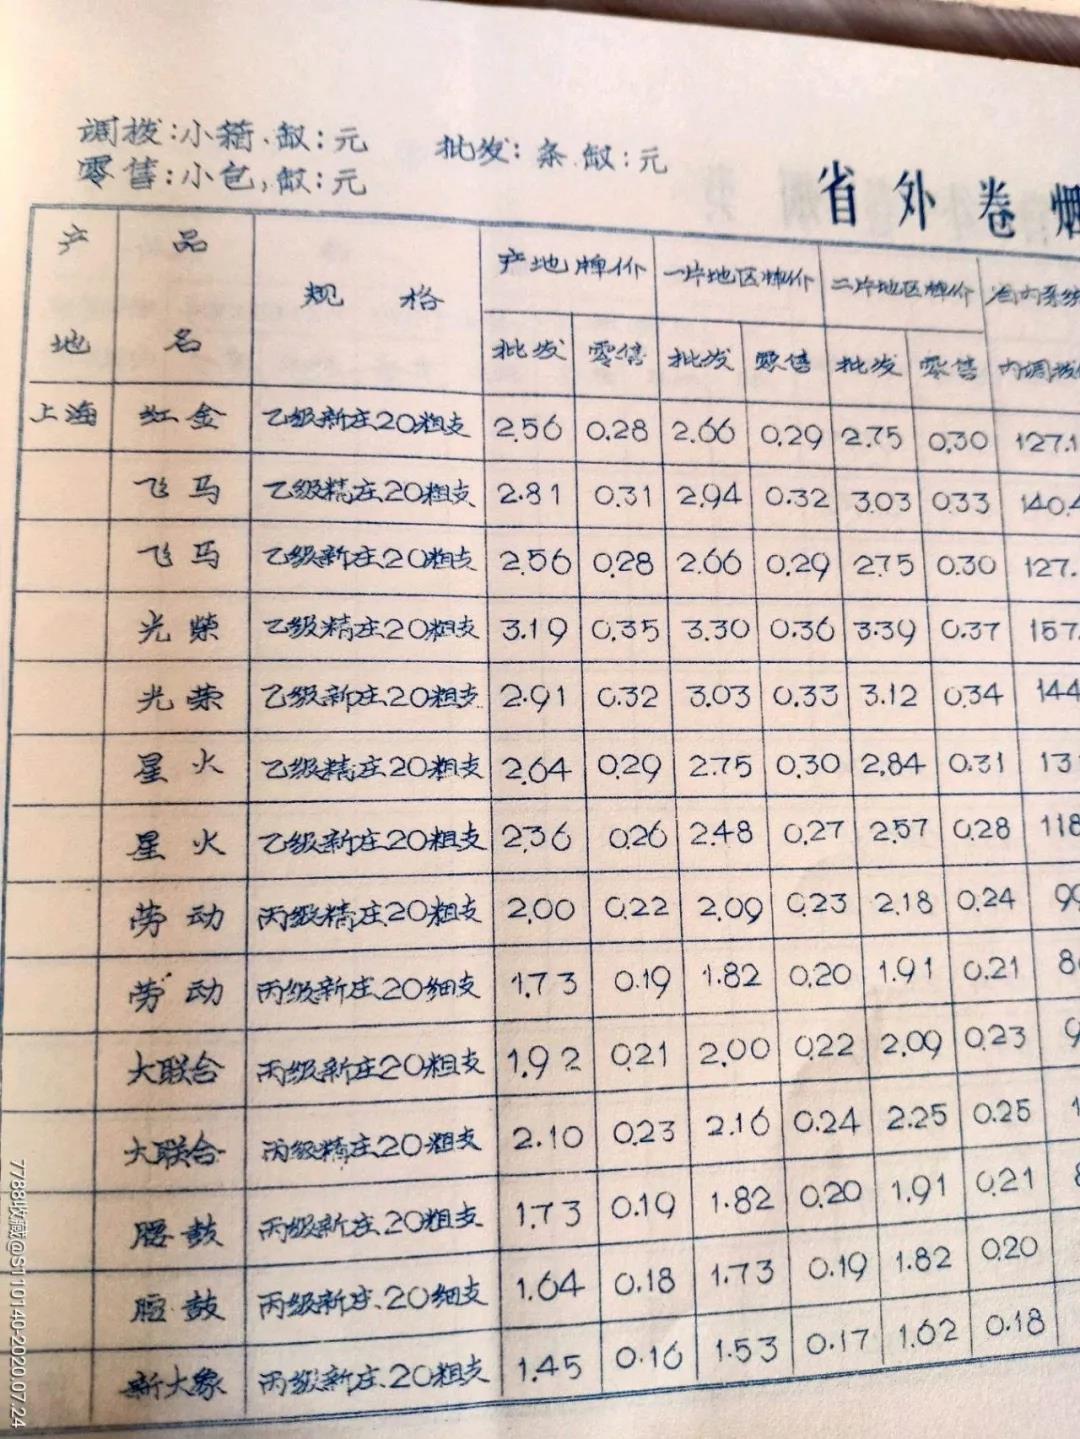 调拨:小箱、包:元 批发:条、包:元
零售:小包,包:元
省外卷烟
产地 品名 规格 产地牌价 一片地区牌价 二片地区牌价 省内系统
批发 零售 批发 零售 批发 零售 内调拨
上海 红金 乙级新庄20粗支 2.56 0.28 2.66 0.29 2.75 0.30 127.1
飞马 乙级精庄20粗支 2.81 0.31 2.94 0.32 3.03 0.33 140.4
飞马 乙级新庄20粗支 2.56 0.28 2.66 0.29 2.75 0.30 127.
光荣 乙级精庄20粗支 3.19 0.35 3.30 0.36 3.39 0.37 157.
光荣 乙级新庄20粗支 2.91 0.32 3.03 0.33 3.12 0.34 144
星火 乙级精庄20粗支 2.64 0.29 2.75 0.30 2.84 0.31 13
星火 乙级新庄20粗支 2.36 0.26 2.48 0.27 2.57 0.28 118
劳动 丙级精庄20粗支 2.00 0.22 2.09 0.23 2.18 0.24 99
劳动 丙级新庄20细支 1.73 0.19 1.82 0.20 1.91 0.21 8
大联合 丙级新庄20粗支 1.92 0.21 2.00 0.22 2.09 0.23 9
大联合 丙级精庄20粗支 2.10 0.23 2.16 0.24 2.25 0.25 1
腰鼓 丙级新庄20粗支 1.73 0.19 1.82 0.20 1.91 0.21 8
腰鼓 丙级新庄20细支 1.64 0.18 1.73 0.19 1.82 0.20
新大象 丙级新庄20粗支 1.45 0.16 1.53 0.17 1.62 0.18
7788收藏@ST10140-2020.07.24